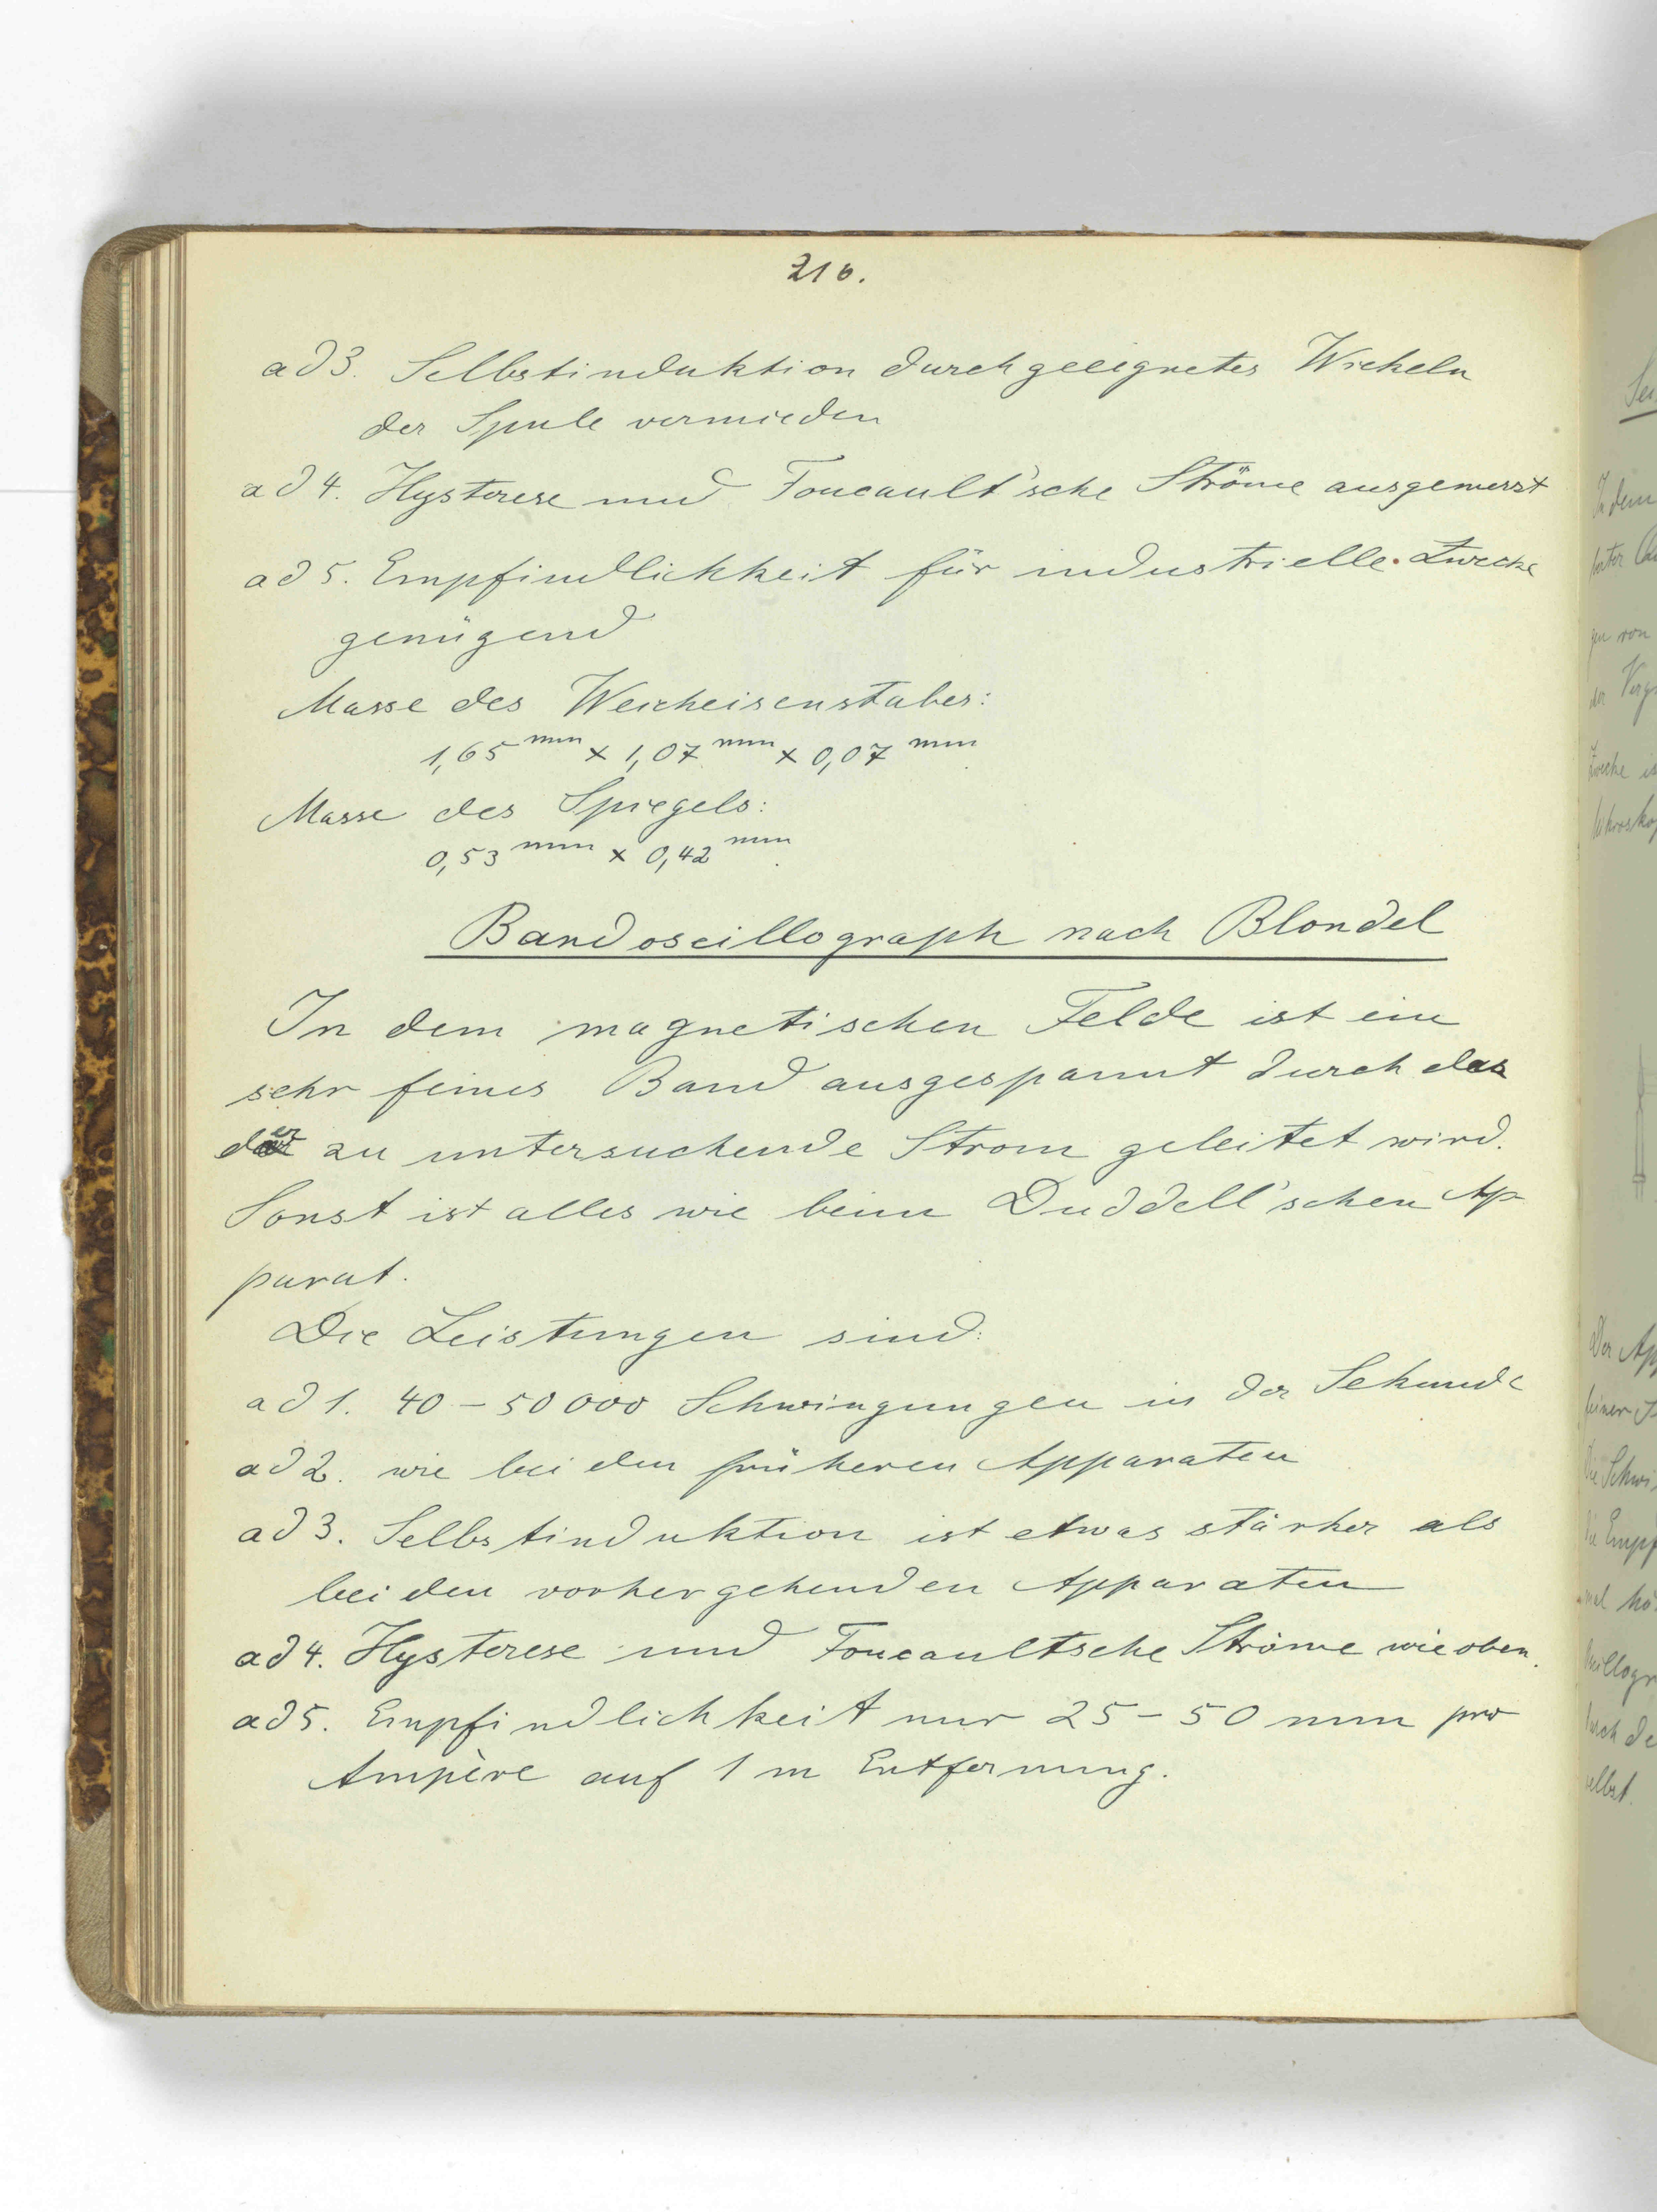 216.
ad 3. Selbstinduktion durch geeignetes Wickeln
der Spule vermieden
ad 4. Hysterese und Foucault'sche Ströme ausgemerzt
ad 5. Empfindlichkeit für industrielle Zwecke
genügend
Masse des Weicheisenstabes:
1,65 mm x 1,07 mm x 0,07 mm
Masse des Spiegels:
0,53 mm x 0,42 mm
Bandoscillograph nach Blondel
In dem magnetischen Felde ist ein
sehr feines Band ausgespannt durch das
der zu untersuchende Strom geleitet wird.
Sonst ist alles wie beim Duddell'schen Ap-
parat.
Die Leistungen sind:
ad 1. 40 – 50 000 Schwingungen in der Sekunde
ad 2. wie bei den früheren Apparaten
ad 3. Selbstinduktion ist etwas stärker als
bei den vorhergehenden Apparaten
ad 4. Hysterese und Foucaultsche Ströme wie oben.
ad 5. Empfindlichkeit nur 25 – 50 mm pro
Ampère auf 1 m Entfernung.